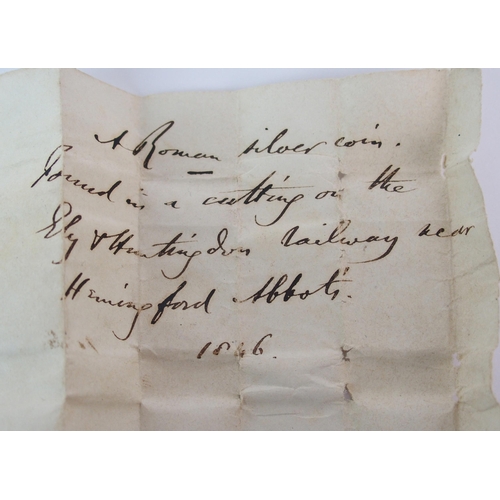 A Roman silver coin.
Found in a cutting on the
Ely & Huntingdon railway near
Hemingford Abbots.
1846.